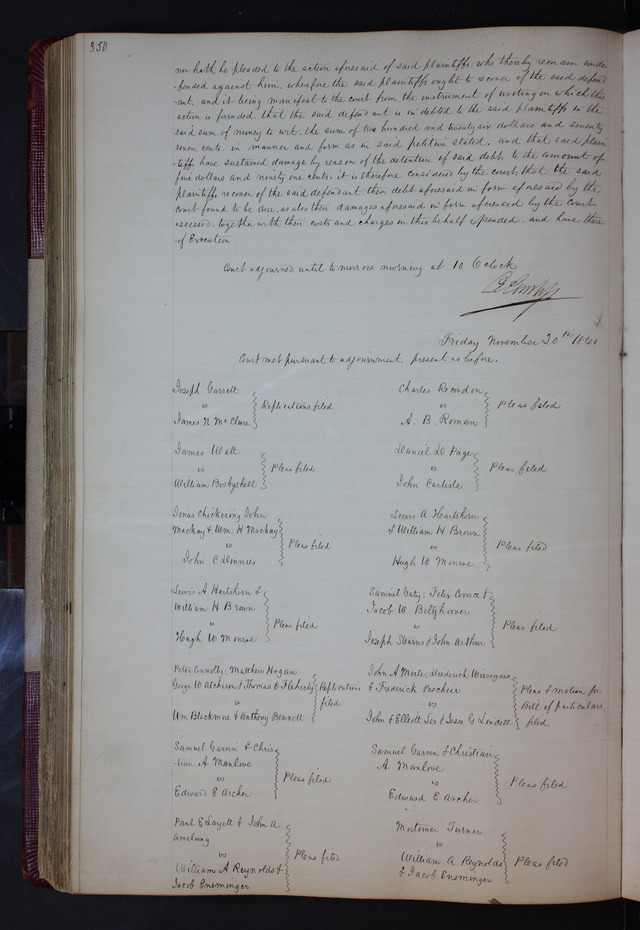 350
nor hath he pleaded to the action aforesaid of said plaintiffs. who thereby remain unde
-fended against him. wherefore the said plaintiffs ought to recover of the said defend
-ant. and it being manifest to the court from the instrument of writing on which this
action is founded that the said defendant is indebted to the said plaintiffs in the
said sum of money to wit. the sum of two hundred and twenty six dollars and seventy
seven cents. in manner and form as in said petition stated. and that said plain
-tiffs have sustained damage by reason of the detention of said debt. to the amount of
five dollars and ninety one cents. it is therefore considered by the court that the said
plaintiffs recover of the said defendant their debt aforesaid in form aforesaid by the
court found to be due. as also their damages aforesaid in form aforesaid by the Court
assessed. together with their costs and charges in this behalf expended. and have there
-of Execution
Court adjourned until to morrow morning at 10 O'clock
Friday November 20th
Court met pursuant to adjournment. present as before.
Joseph Garrett
vs
James N McClure
Replications filed
Charles Recordon
vs
A. B. Roman
Pleas filed
James Wall
vs
William Bosbyshell
Pleas filed
Daniel D Page
vs
John Carlisle
Pleas filed
Jonas Chickering John
Mackay & Wm. H Mackay
vs
John C Dinnies
Pleas filed
Lewis A Hartshorn
& William H Brown
vs
Hugh W Monroe
Pleas filed
Lewis A Hartshorn &
William H Brown
vs
Hugh W Monroe
Pleas filed
Samuel Gaty. Felix Coonce &
Jacob W Beltzhoover
vs
Joseph Stearns & John Arthur
Pleas filed
Peter Connolly. Matthew Hogan
George W Atchison & Thomas O Flaherty
vs
Wm Blackmore & Anthony Bennett
Replications
filed
John A Merle, Diederick
& Frederick
vs
John & Elliott Lee & Jesse G Lindell
Pleas & motion for
Bill of particulars
filed
Samuel Garvin & Chris
-tian A Manlove
vs
Edward E Archer
Pleas filed
Samuel Garvin & Christian
A Manlove
vs
Edward E Archer
Pleas filed
Paul E Layett & John A
Amelung
vs
William A Reynolds &
Jacob Eneminger
Pleas filed
Mortimer Turner
vs
William A Reynolds
& Jacob Eneminger
Pleas filed